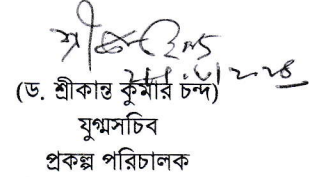 (ড. শ্রীকান্ত কুমার চন্দ)
যুগ্মসচিব
প্রকল্প পরিচালক